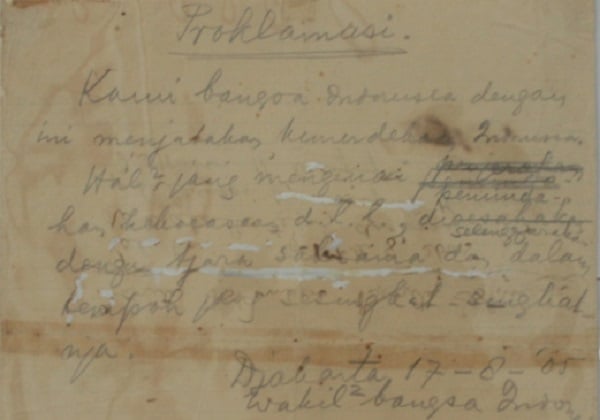 Proklamasi.
Kami bangsa Indonesia dengan
ini menjatakan kemerdekaan Indonesia.
Hal² jang mengenai penjerahan
peminda-
han kekoeasaan d.l.l., dioesahakan
selenggarakan
dengan tjara saksama dan dalam
tempoh jang sesingkat-singkat-
nja.
Djakarta, 17 - 8 - '05
Wakil² bangsa Indon